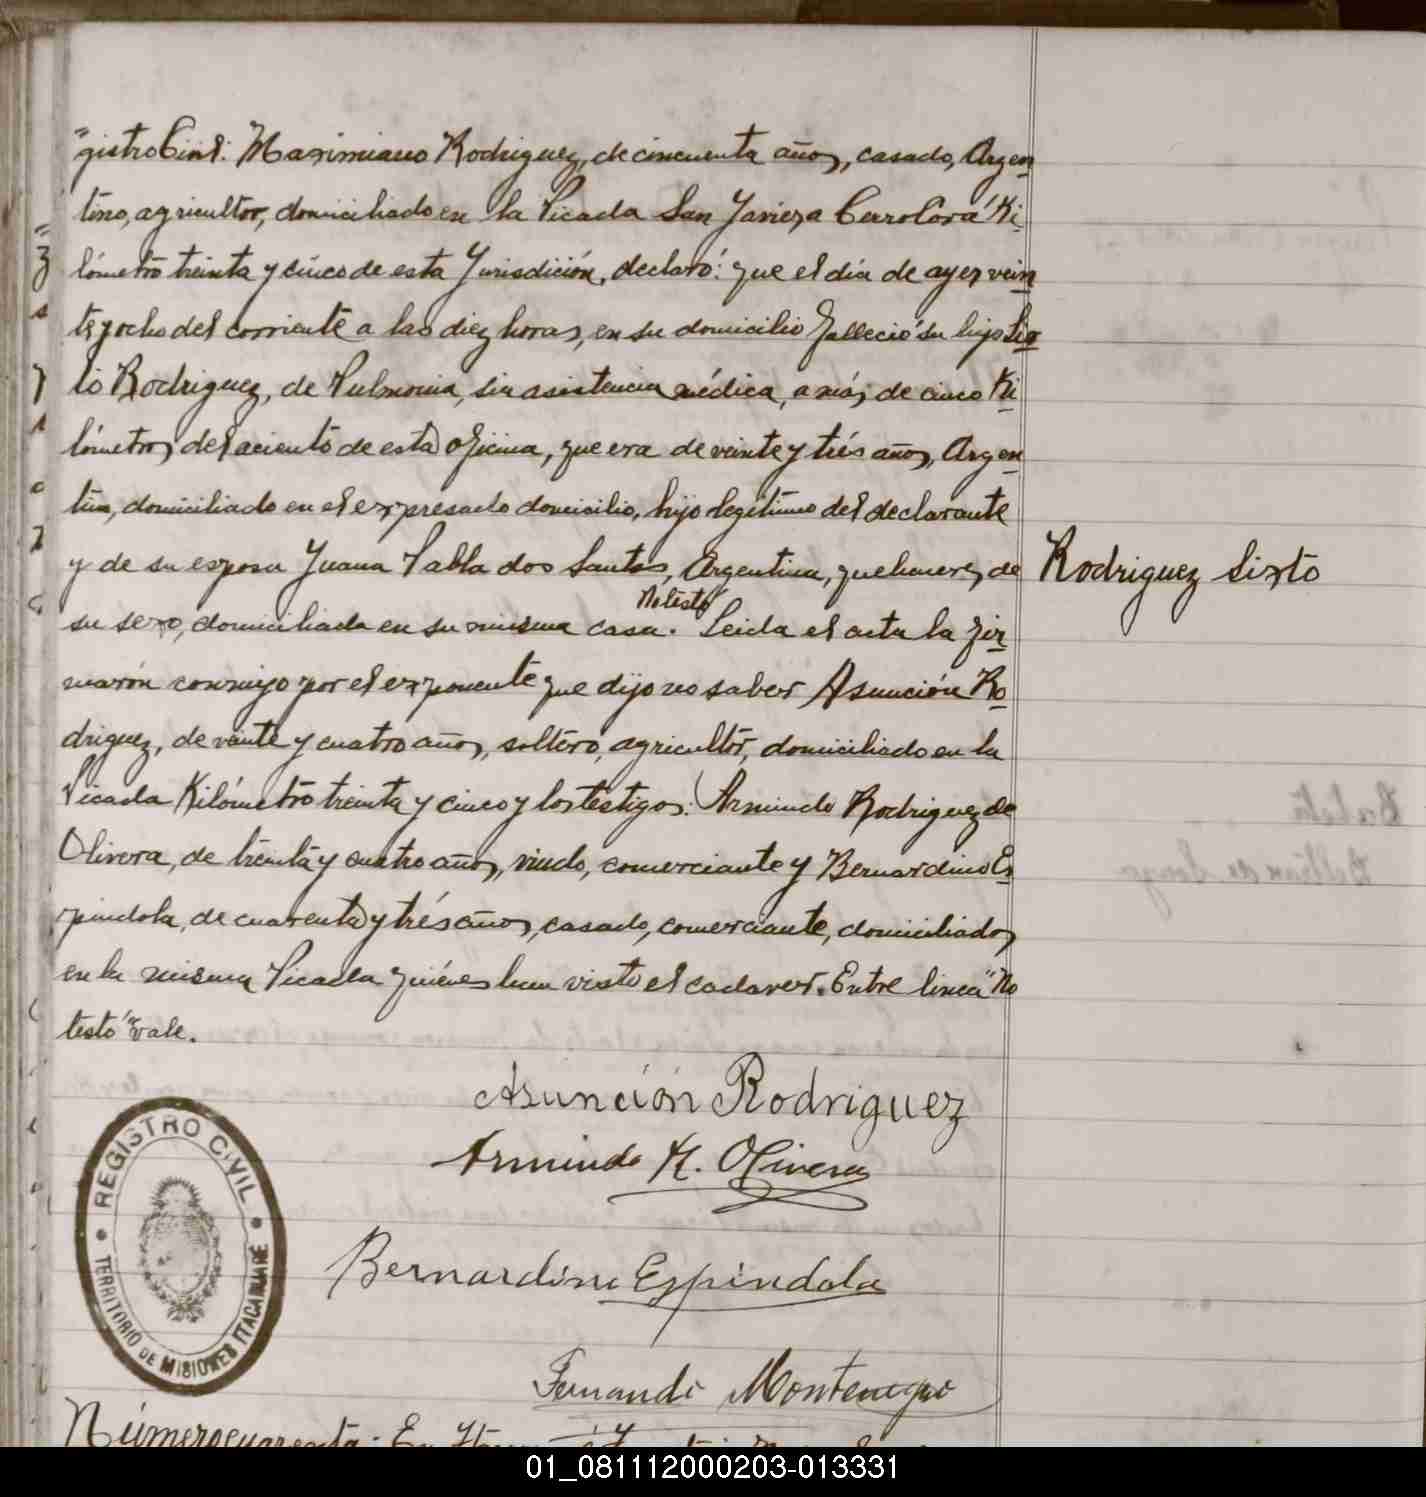 "gistro Civil: Maximiano Rodriguez, de cincuenta años, casado, Argen
tino, agricultor, domiciliado en la Picada San Javier a Cerro Corá Ki
lómetro treinta y cinco de esta Jurisdición, declaró: que el día de ayer vein
te y ocho del corriente a las diez horas, en su domicilio falleció su hijo Six
to Rodriguez, de Pulmonia, sin asistencia médica, a más de cinco Ki
lómetros del aciento de esta oficina, que era de veinte y trés años, Argen
tino, domiciliado en el expresado domicilio, hijo legítimo del declarante
y de su esposa Juana Pabla dos Santos, Argentina, quehaceres de
Rodriguez Sixto
No testó
su sexo, domiciliada en su misma casa. Leida el acta la fir
marón conmigo por el exponente que dijo no saber Asunción Ro
driguez, de veinte y cuatro años, soltero, agricultor, domiciliado en la
Picada Kilómetro treinta y cinco y los testigos: Armindo Rodriguez de
Olivera, de treinta y cuatro años, viudo, comerciante y Bernardino Es
pindola, de cuarenta y trés años, casado, comerciante, domiciliados
en la misma Picada quiénes han visto el cadaver. Entre linea "No
testó" vale.
Asunción Rodriguez
Armindo R. Olivera
Bernardino Espindola
Fernando Montenegro
REGISTRO CIVIL
TERRITORIO DE MISIONES ITACARUARE
Número cuarenta. En
01_081112000203-013331